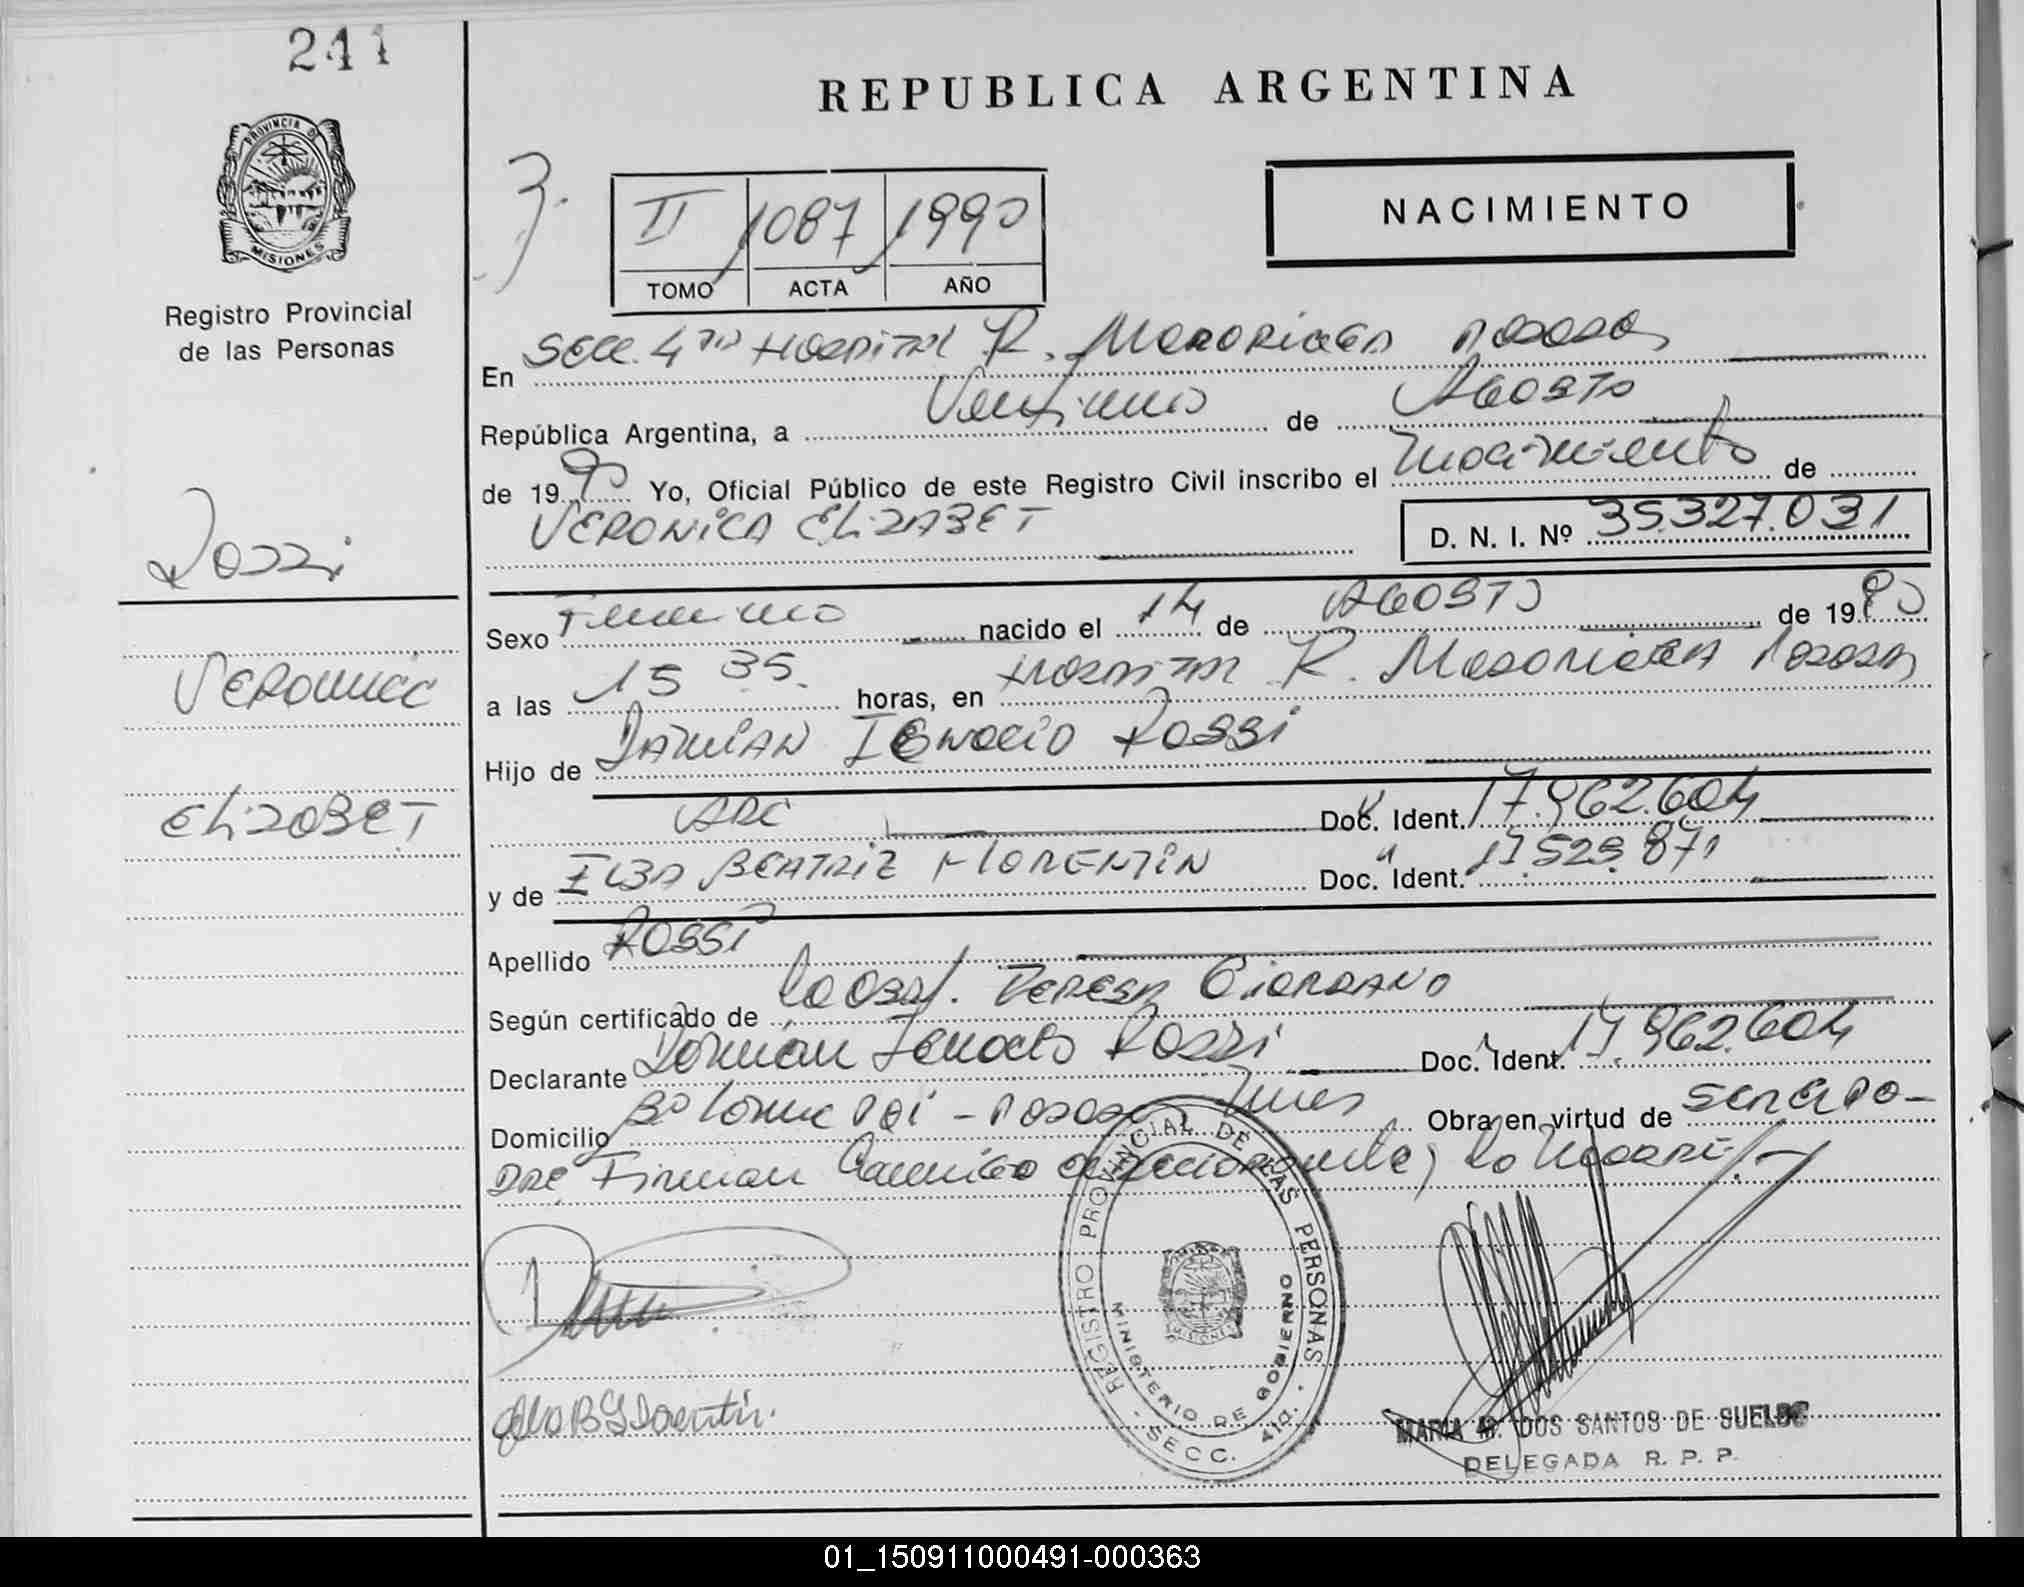 241
REPUBLICA ARGENTINA
PROVINCIA DE
MISIONES
Registro Provincial
de las Personas
II 1087 1990
TOMO ACTA AÑO
NACIMIENTO
En Secc. 4ta Hospital R. Madariaga Posadas
República Argentina, a Veintiuno de Agosto
de 1990 Yo, Oficial Público de este Registro Civil inscribo el nacimiento de
VERONICA ELIZABET
D. N. I. Nº 35.327.031
Rossi
Veronica
ELIZABET
Sexo Femenino nacido el 14 de AGOSTO de 1990
a las 15 35. horas, en Hospital R. Madariaga Posadas
Hijo de DAMIAN IGNACIO ROSSI
ARG Doc. Ident. 17.962.604
y de ELBA BEATRIZ FLORENTIN Doc. Ident. 17.523.871
Apellido ROSSI
Según certificado de la Obst. TERESA GIORDANO
Declarante Damián Ignacio Rossi Doc. Ident. 17.962.604
Domicilio Bº Posadas Mnes Obra en virtud de ser el PA-
DRE Firman Conmigo el y la Madre
REGISTRO PROVINCIAL DE LAS PERSONAS
MINISTERIO DE GOBIERNO
MISIONES
SECC. 4ta.
MARIA M. DOS SANTOS DE SUELDO
DELEGADA R. P. P.
01_150911000491-000363